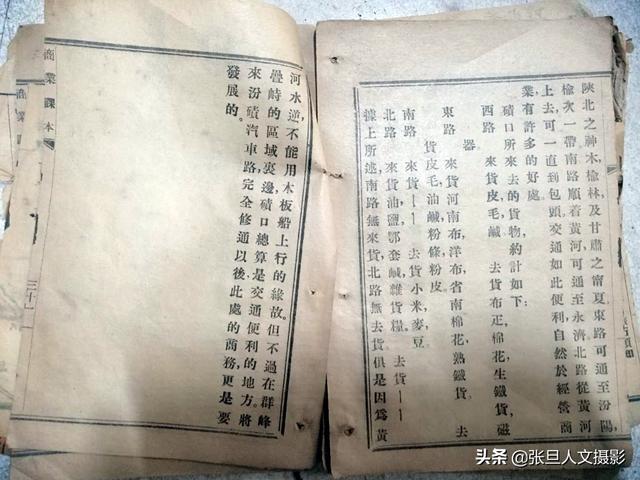 陝北之神木榆林,及甘肅之甯夏東路可通至汾陽,
榆次一帶南路順着黃河可通至永濟北路從黃河
上去可一直到包頭交通如此便利自然於經營商
業有許多的好處。
磧口所來去的貨物,約計如下:
西路 來貨皮,毛,鹹 去貨布疋,棉花,生鐵貨,磁
器。
東路 來貨河南布,洋布,省南棉花,熟鐵貨。 去
貨皮毛油鹹粉條粉皮
南路 來貨—— 去貨小米,麥,豆
北路 來貨油,鹽,鄂套鹹,雜貨糧。 去貨——
據上所述南路無來貨,北路無去貨俱是因為黃
河水逆,不能用木板船上行的緣故。但不過在群峰
疊峙的區域裏,邊磧口總算是交通便利的地方。將
來汾磧汽車路,完全修通以後,此處的商務,更是要
發展的。
商業課本
三十一
商業課本
头条 @张旦人文摄影